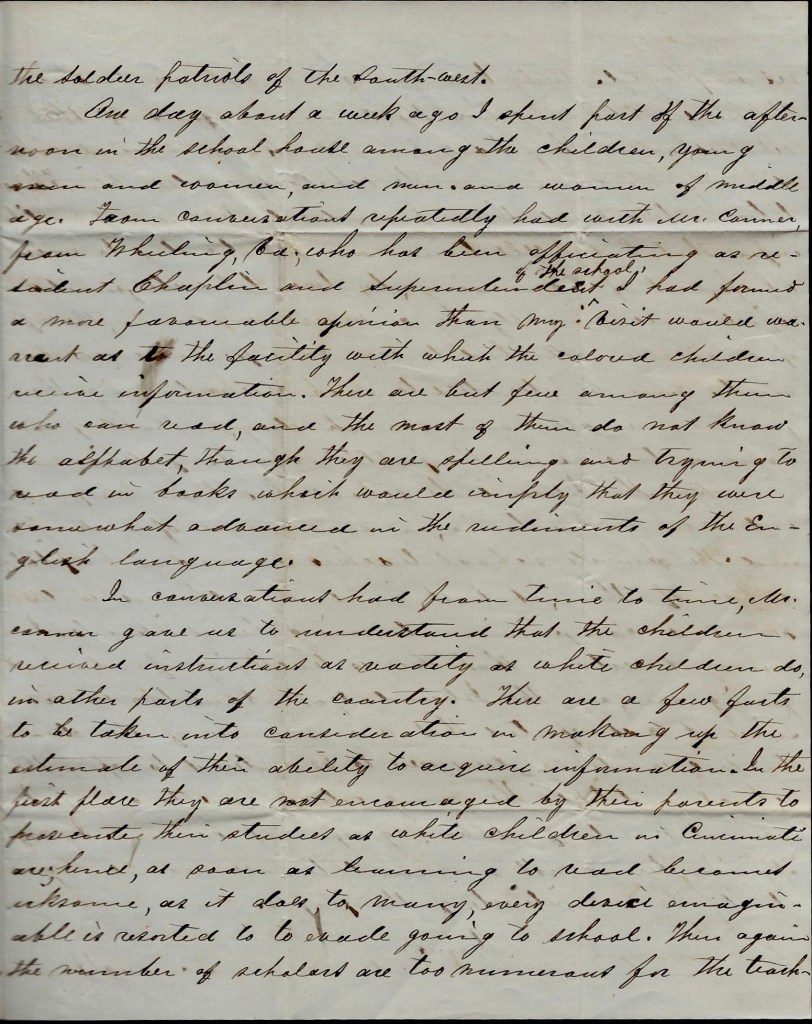 the soldier patriots of the South-west.
One day about a week ago I spent part of the after-
noon in the school house among the children, young
men and women, and men and women of middle
age. From conversations repeatedly had with Mr. Conner,
from Wheeling, Va., who has been officiating as re-
sident Chaplin and Superintendent
of the school,
I had formed
a more favourable opinion than my visit would wa-
rrent as to the facility with which the colored children
receive information. There are but few among them
who can read, and the most of them do not know
the alphabet, though they are spelling and trying to
read in books which would imply that they were
somewhat advanced in the rudiments of the En-
glish language.
In conversations had from time to time, Mr.
Conner gave us to understand that the children
received instructions as readily as white children do,
in other parts of the country. There are a few facts
to be taken into consideration in making up the
estimate of their ability to acquire information. In the
first place they are not encouraged by their parents to
prosecute their studies as white children in Cincinnati
are, hence, as soon as learning to read becomes
irksome, as it does, to many, every desire emagin-
able is resorted to to evade going to school. Then again
the number of scholars are too numerous for the teach-